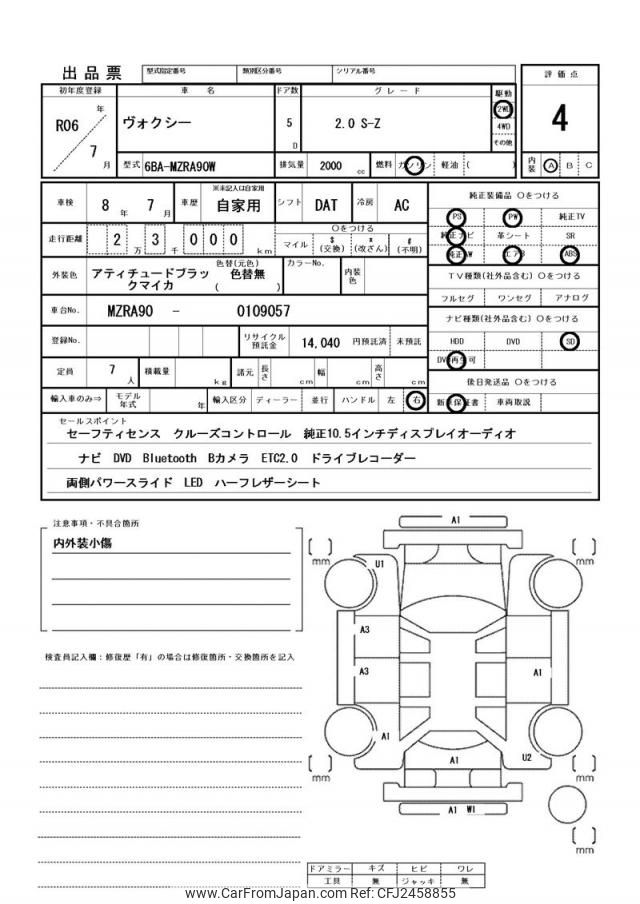 出品票 型式指定番号 類別区分番号 シリアル番号 評価点
初年度登録 車名 ドア数 グレード 駆動
R06 年 7 月 ヴォクシー 5 D 2.0 S-Z 2WD 4WD その他 4
型式 6BA-MZRA90W 排気量 2000 cc 燃料 ガソリン 軽油 ( ) 内装 A B C
車検 8 年 7 月 車歴 ※未記入は自家用 自家用 シフト DAT 冷房 AC
純正装備品 〇をつける
PS PW 純正TV
純正ナビ 革シート SR
純正AW エアB ABS
走行距離 2 万 3 千 0 0 0 km
〇をつける
マイル $(交換) x(改ざん) #(不明)
外装色 アティチュードブラックマイカ 色替(元色) 色替無 ( ) カラーNo. 内装色
TV種類(社外品含む) 〇をつける
フルセグ ワンセグ アナログ
車台No. MZRA90 - 0109057
ナビ種類(社外品含む) 〇をつける
HDD DVD SD
DVD再生可
登録No. リサイクル預託金 14,040 円預託済 未預託
定員 7 人 積載量 kg 諸元 長さ cm 幅 cm 高さ cm
後日発送品 〇をつける
新車保証書 車両取説
輸入車のみ⇒ モデル年式 年 輸入区分 ディーラー 並行 ハンドル 左 右
セールスポイント
セーフティセンス クルーズコントロール 純正10.5インチディスプレイオーディオ
ナビ DVD Bluetooth Bカメラ ETC2.0 ドライブレコーダー
両側パワースライド LED ハーフレザーシート
注意事項・不具合箇所
内外装小傷
検査員記入欄:修復歴「有」の場合は修復箇所・交換箇所を記入
A1
[ ] mm [ ] mm
U1
A3
A3 A1
A1 U2
A1
[ ] mm [ ] mm
A1 W1
[ ] mm
ドアミラー キズ ヒビ ワレ
工具 無 ジャッキ 無
www.CarFromJapan.com Ref: CFJ2458855